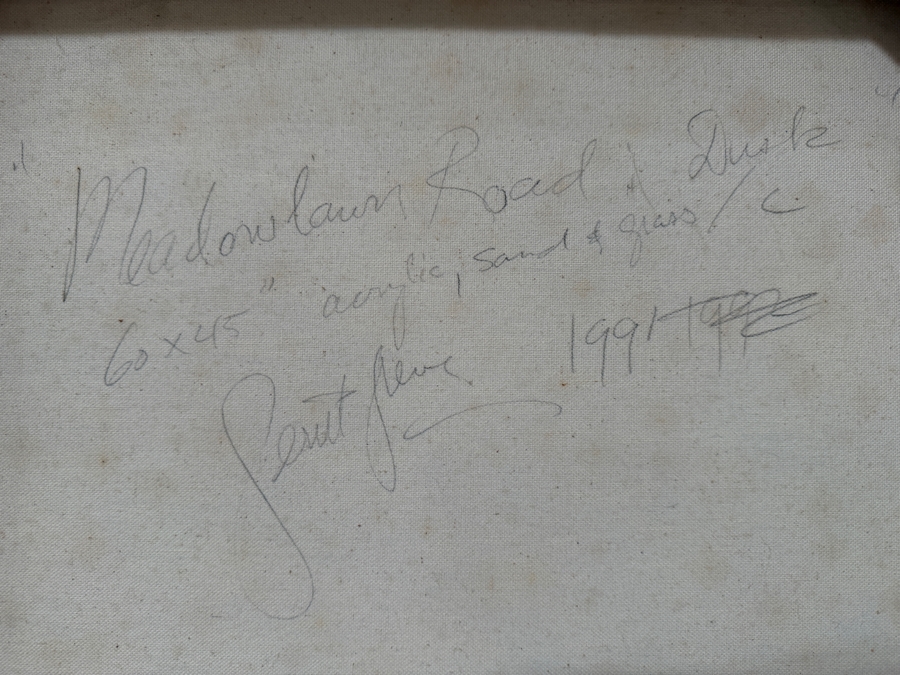 "Meadowlawn Road & Dusk"
60x45" acrylic, sand & grass/c
1991